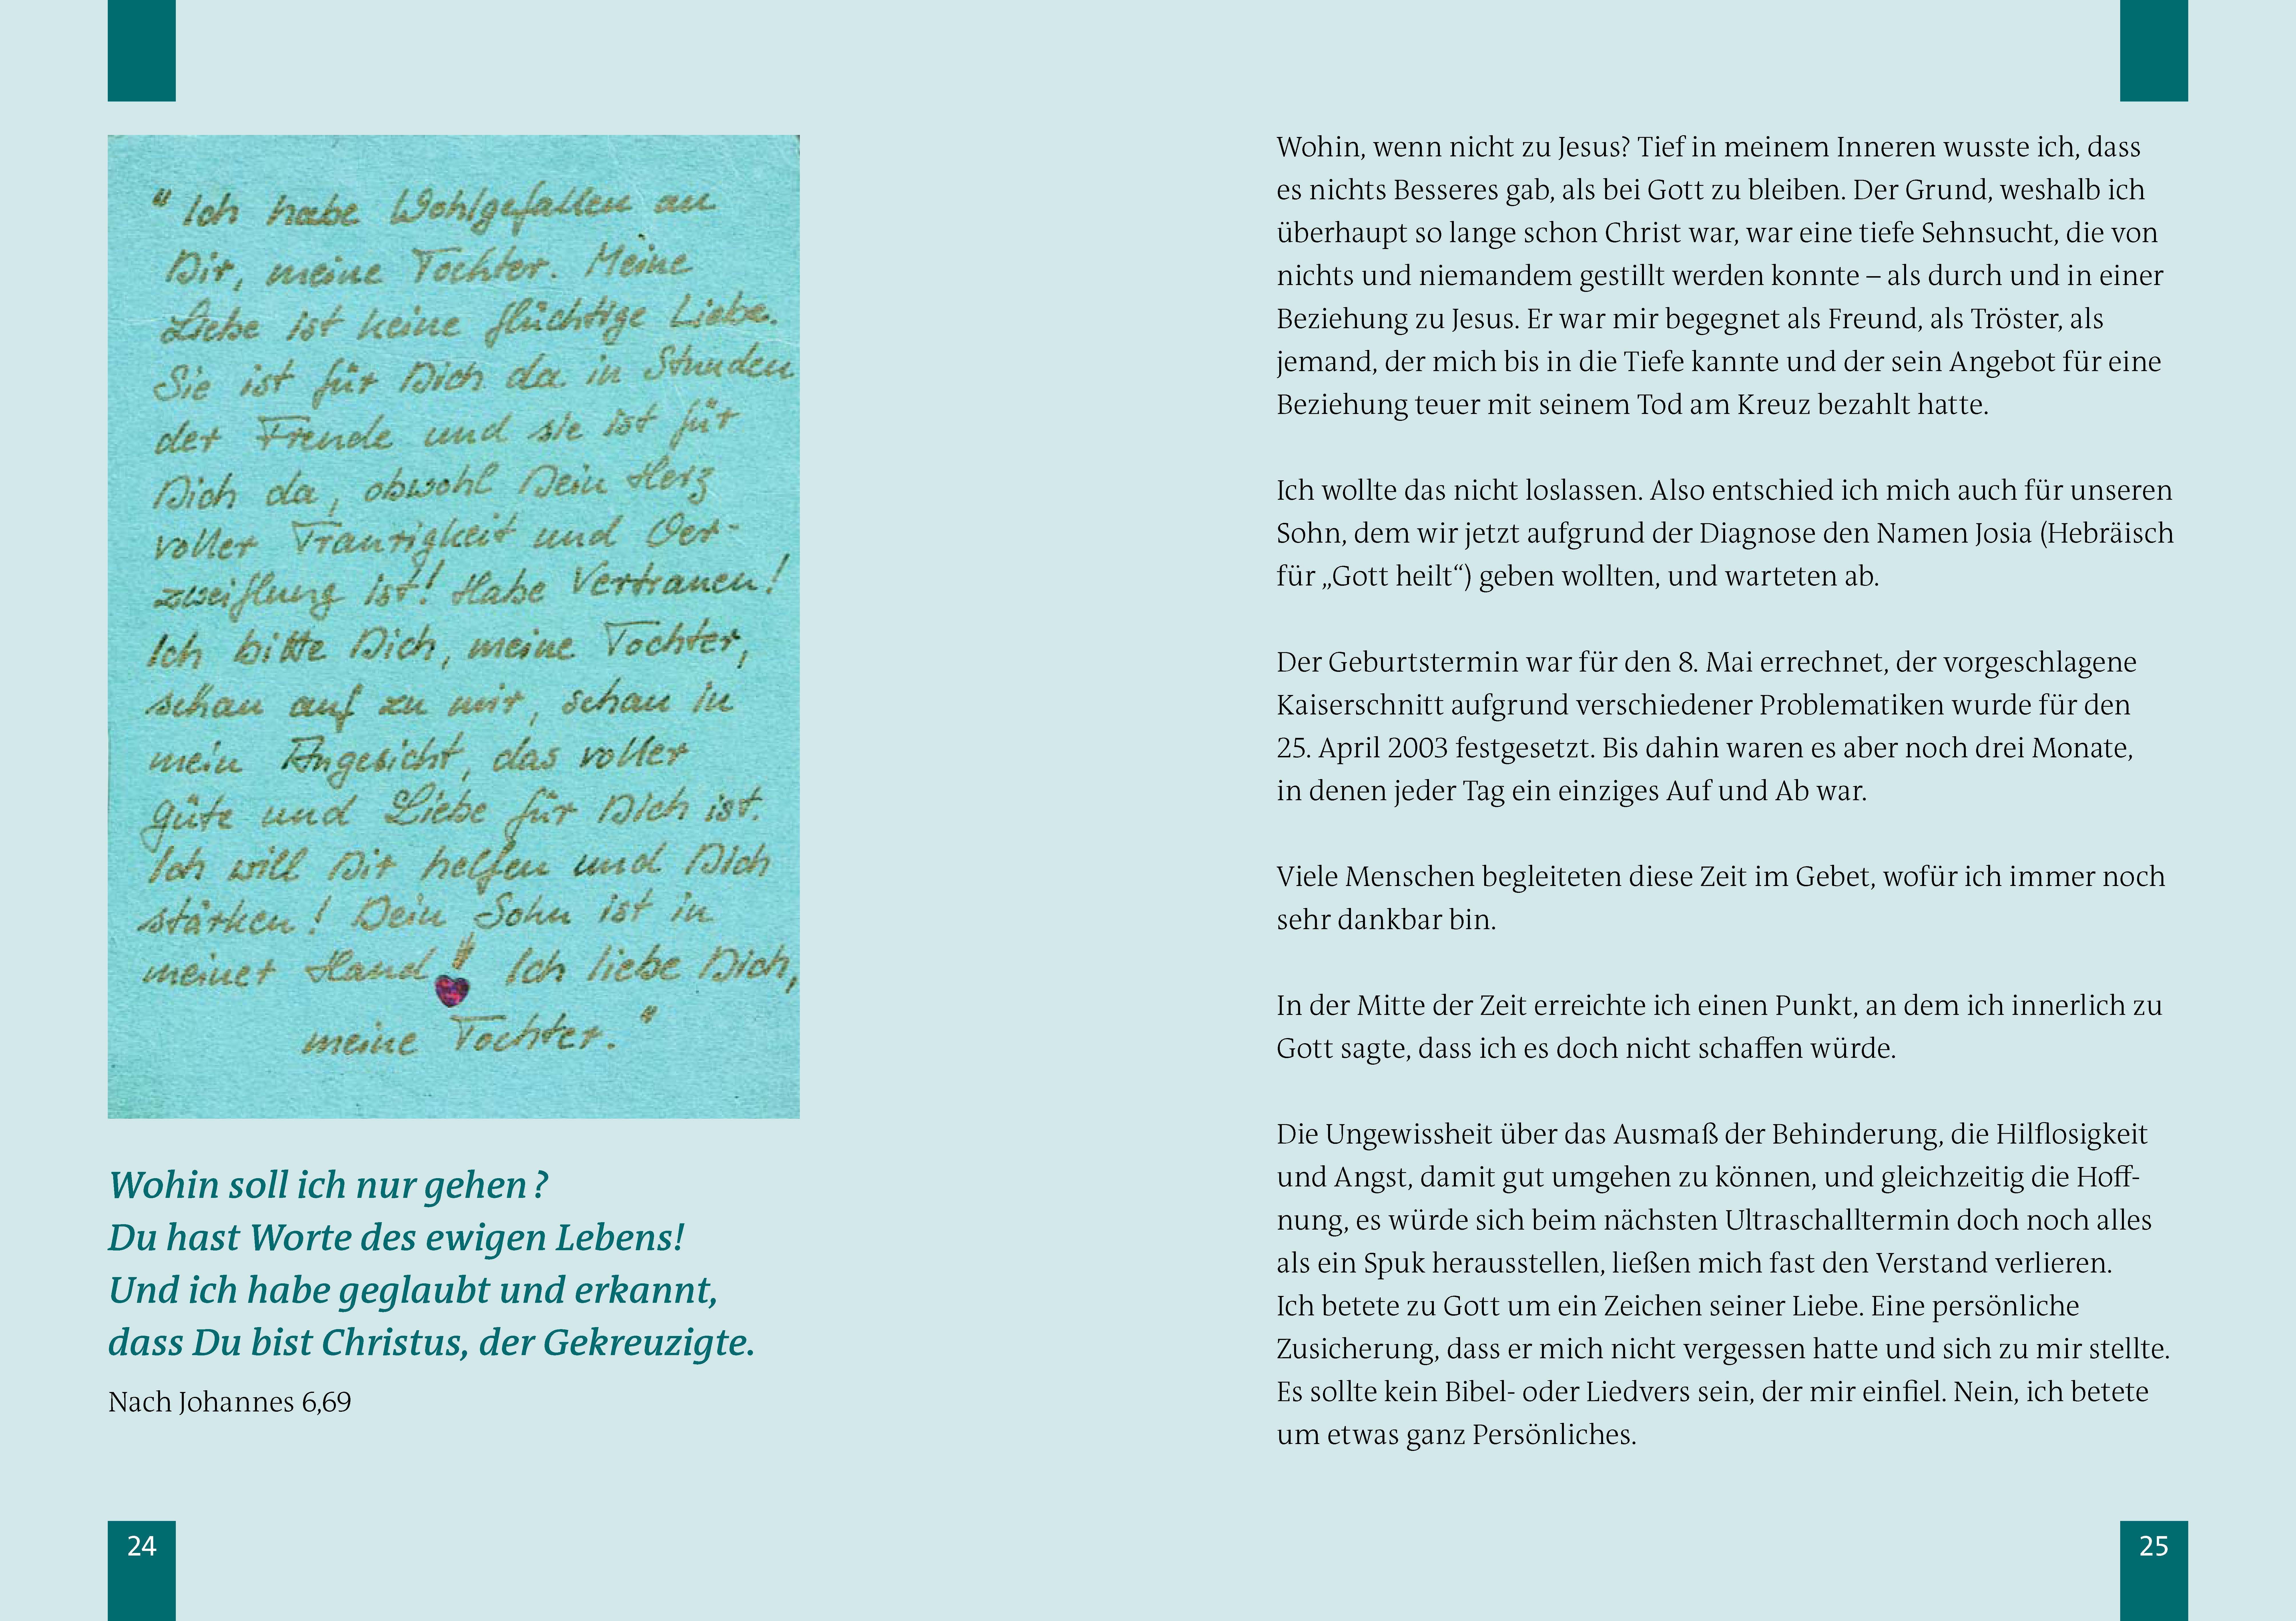 " Ich habe Wohlgefallen an
Dir, meine Tochter. Meine
Liebe ist keine flüchtige Liebe.
Sie ist für Dich da in Stunden
der Freude und sie ist für
Dich da, obwohl Dein Herz
voller Traurigkeit und Ver-
zweiflung ist! Habe Vertrauen!
Ich bitte Dich, meine Tochter,
schau auf zu mir, schau in
mein Angesicht, das voller
Güte und Liebe für Dich ist.
Ich will Dir helfen und Dich
stärken! Dein Sohn ist in
meiner Hand!" Ich liebe Dich,
meine Tochter."
Wohin soll ich nur gehen?
Du hast Worte des ewigen Lebens!
Und ich habe geglaubt und erkannt,
dass Du bist Christus, der Gekreuzigte.
Nach Johannes 6,69
24
Wohin, wenn nicht zu Jesus? Tief in meinem Inneren wusste ich, dass
es nichts Besseres gab, als bei Gott zu bleiben. Der Grund, weshalb ich
überhaupt so lange schon Christ war, war eine tiefe Sehnsucht, die von
nichts und niemandem gestillt werden konnte – als durch und in einer
Beziehung zu Jesus. Er war mir begegnet als Freund, als Tröster, als
jemand, der mich bis in die Tiefe kannte und der sein Angebot für eine
Beziehung teuer mit seinem Tod am Kreuz bezahlt hatte.
Ich wollte das nicht loslassen. Also entschied ich mich auch für unseren
Sohn, dem wir jetzt aufgrund der Diagnose den Namen Josia (Hebräisch
für „Gott heilt“) geben wollten, und warteten ab.
Der Geburtstermin war für den 8. Mai errechnet, der vorgeschlagene
Kaiserschnitt aufgrund verschiedener Problematiken wurde für den
25. April 2003 festgesetzt. Bis dahin waren es aber noch drei Monate,
in denen jeder Tag ein einziges Auf und Ab war.
Viele Menschen begleiteten diese Zeit im Gebet, wofür ich immer noch
sehr dankbar bin.
In der Mitte der Zeit erreichte ich einen Punkt, an dem ich innerlich zu
Gott sagte, dass ich es doch nicht schaffen würde.
Die Ungewissheit über das Ausmaß der Behinderung, die Hilflosigkeit
und Angst, damit gut umgehen zu können, und gleichzeitig die Hoff-
nung, es würde sich beim nächsten Ultraschalltermin doch noch alles
als ein Spuk herausstellen, ließen mich fast den Verstand verlieren.
Ich betete zu Gott um ein Zeichen seiner Liebe. Eine persönliche
Zusicherung, dass er mich nicht vergessen hatte und sich zu mir stellte.
Es sollte kein Bibel- oder Liedvers sein, der mir einfiel. Nein, ich betete
um etwas ganz Persönliches.
25